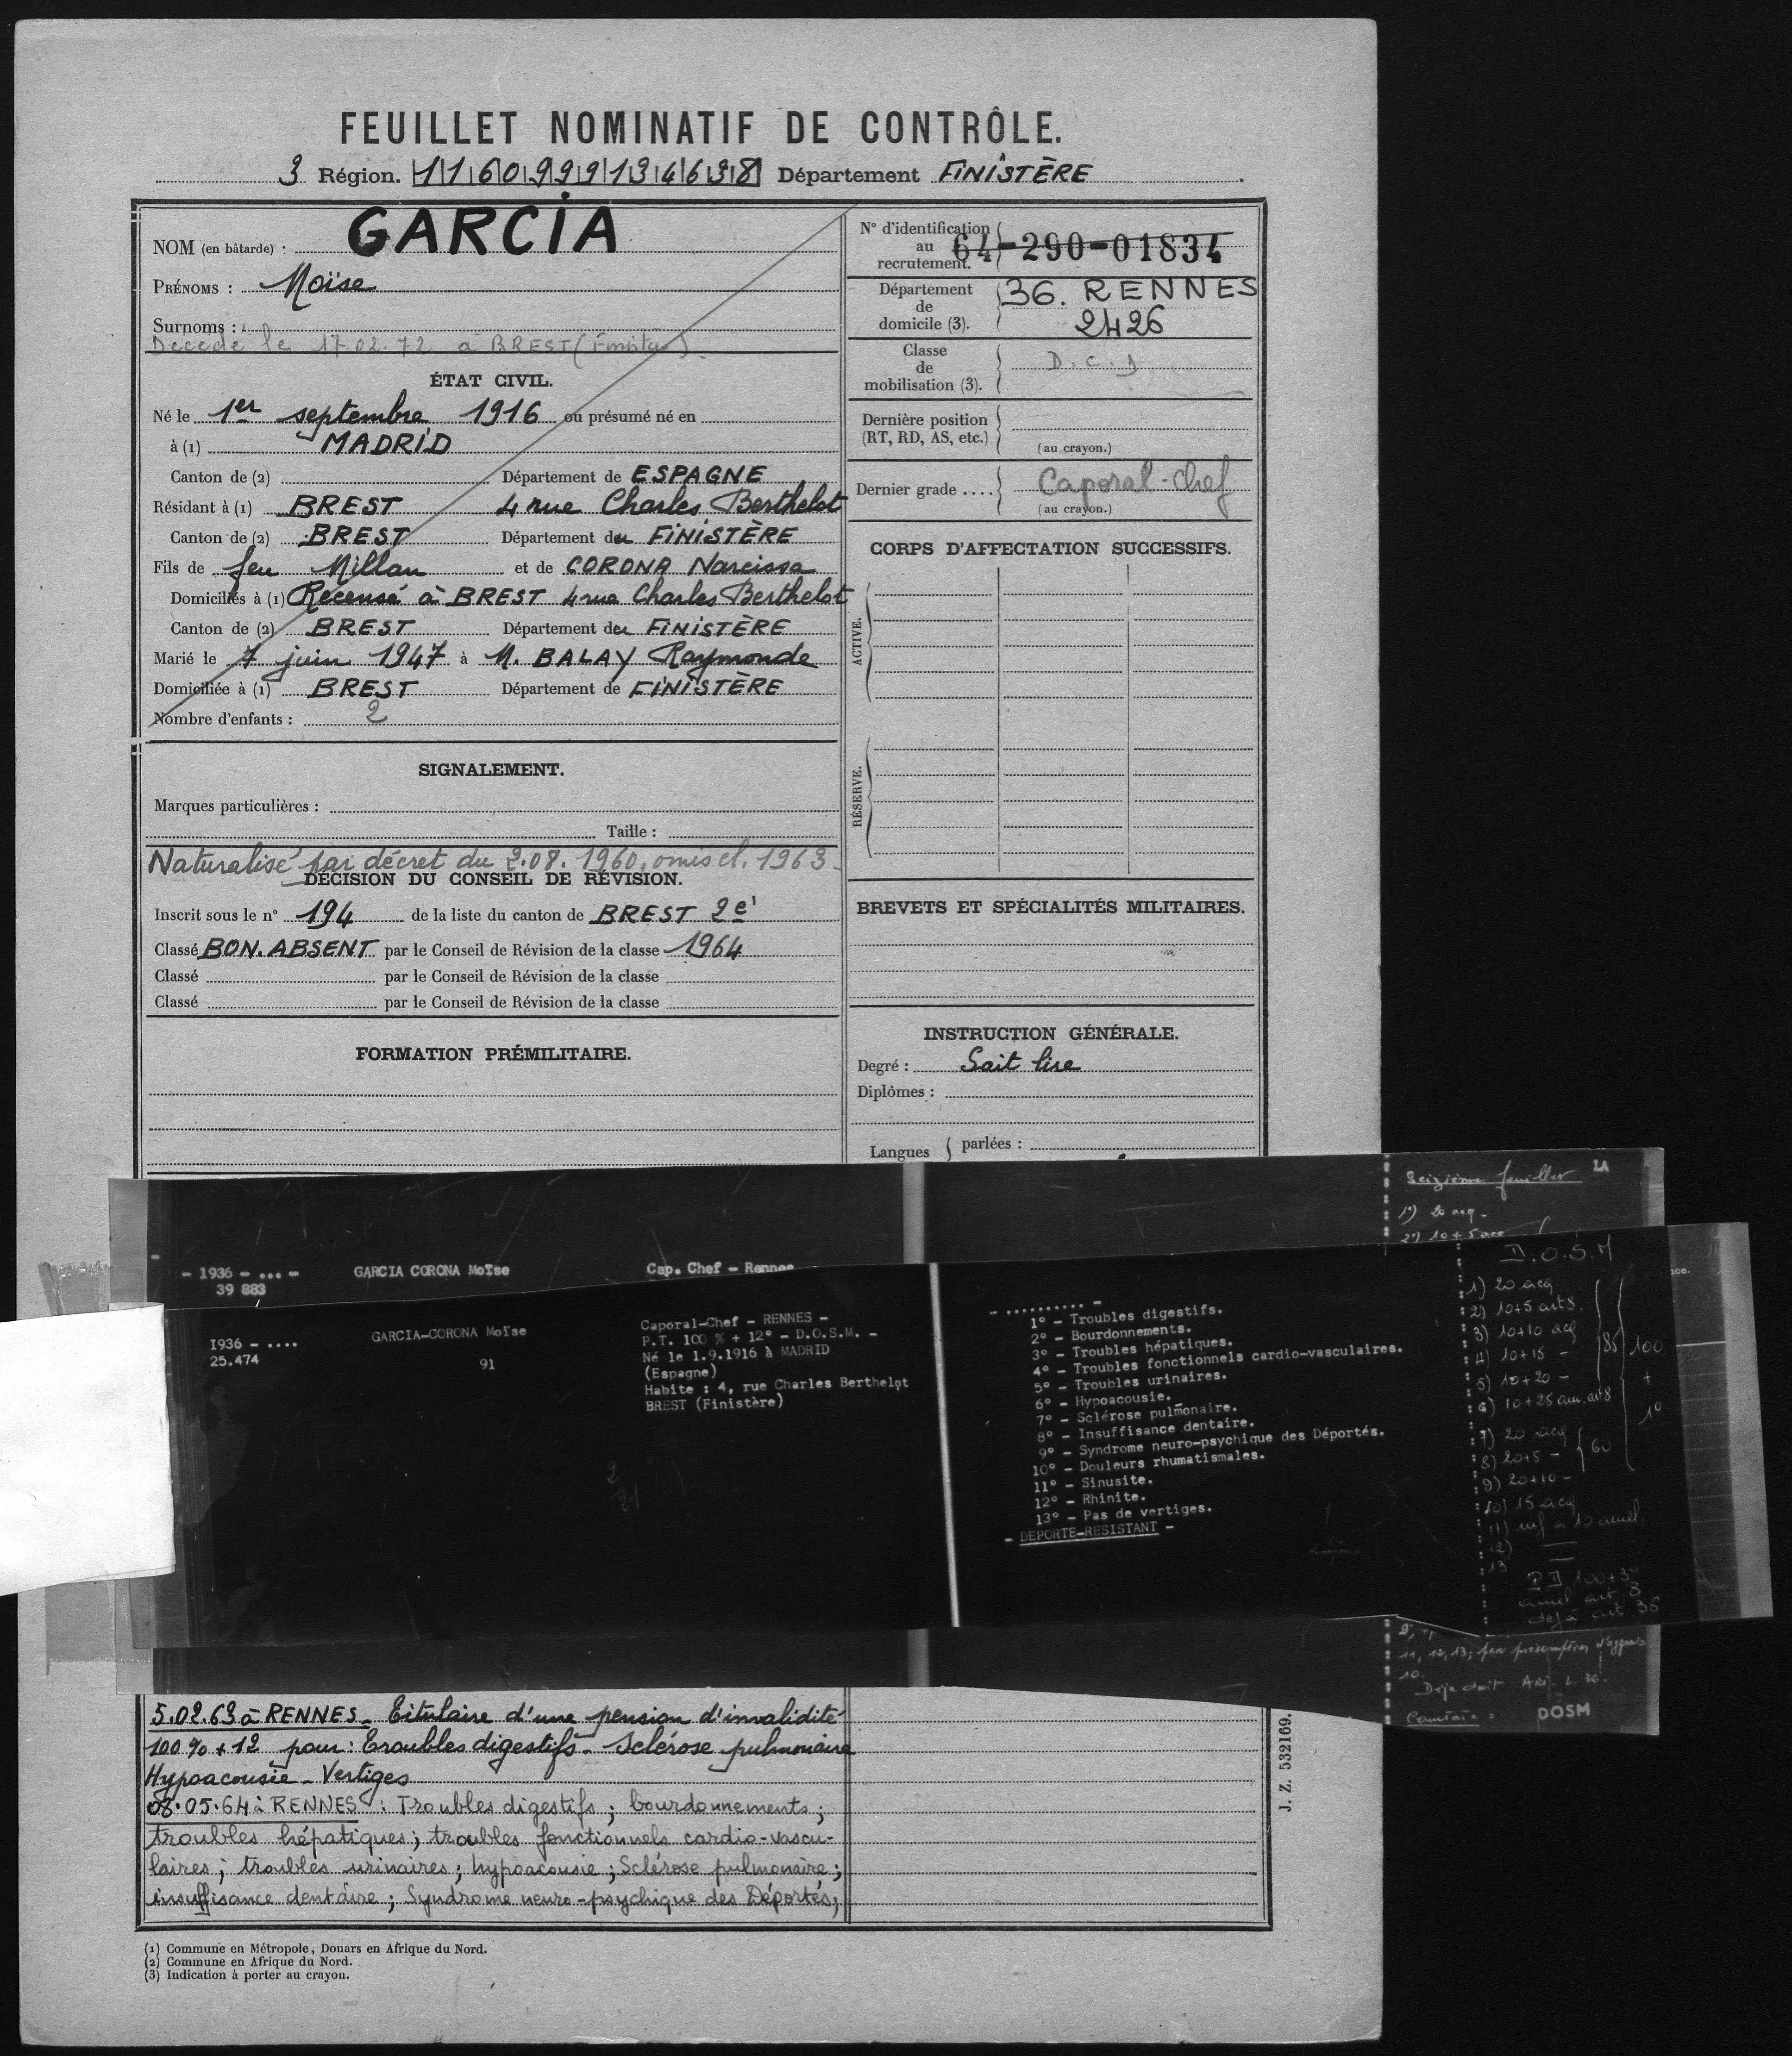 FEUILLET NOMINATIF DE CONTRÔLE.
3 Région. 1160999134638 Département FINISTÈRE
NOM (en bâtarde) : GARCIA
PRÉNOMS : Moïse
Surnoms :
Décédé le 17.02.72 à BREST (Finistère).
ÉTAT CIVIL.
Né le 1er septembre 1916 ou présumé né en
à (1) MADRID
Canton de (2) Département de ESPAGNE
Résidant à (1) BREST 4 rue Charles Berthelot
Canton de (2) BREST Département du FINISTÈRE
Fils de feu Millan et de CORONA Narcissa
Domiciliés à (1) Recensé à BREST 4 rue Charles Berthelot
Canton de (2) BREST Département du FINISTÈRE
Marié le 7 juin 1947 à M. BALAY Raymonde
Domiciliée à (1) BREST Département de FINISTÈRE
Nombre d'enfants : 2
SIGNALEMENT.
Marques particulières :
Taille :
Naturalisé par décret du 2.08.1960, omis cl. 1963
DÉCISION DU CONSEIL DE RÉVISION.
Inscrit sous le n° 194 de la liste du canton de BREST 2e
Classé BON. ABSENT par le Conseil de Révision de la classe 1964
Classé par le Conseil de Révision de la classe
Classé par le Conseil de Révision de la classe
FORMATION PRÉMILITAIRE.
N° d'identification
au
recrutement.
64-290-01834
Département
de
domicile (3).
36. RENNES
2426
Classe
de
mobilisation (3).
D.C.J
Dernière position
(RT, RD, AS, etc.)
(au crayon.)
Dernier grade .... Caporal-chef
(au crayon.)
CORPS D'AFFECTATION SUCCESSIFS.
ACTIVE.
RÉSERVE.
BREVETS ET SPÉCIALITÉS MILITAIRES.
INSTRUCTION GÉNÉRALE.
Degré : Sait lire
Diplômes :
Langues parlées :
Seizième feuillet LA
1°) 20 acq -
2°) 10 + 5 acq
- 1936 - ... - GARCIA CORONA Moïse Cap. Chef - Rennes
39 883
1936 - .... GARCIA-CORONA Moïse
25.474 91
Caporal-Chef - RENNES -
P.T. 100 % + 12° - D.O.S.M. -
Né le 1.9.1916 à MADRID
(Espagne)
Habite : 4, rue Charles Berthelot
BREST (Finistère)
- .......... -
1° - Troubles digestifs.
2° - Bourdonnements.
3° - Troubles hépatiques.
4° - Troubles fonctionnels cardio-vasculaires.
5° - Troubles urinaires.
6° - Hypoacousie.
7° - Sclérose pulmonaire.
8° - Insuffisance dentaire.
9° - Syndrome neuro-psychique des Déportés.
10° - Douleurs rhumatismales.
11° - Sinusite.
12° - Rhinite.
13° - Pas de vertiges.
- DEPORTE-RESISTANT -
D.O.S.M
1) 20 acq
2) 10+5 art 8.
3) 10+10 acq
4) 10+15 -
5) 10+20 -
6) 10+25 art 8
85
100
+
1°
7) 20 acq
8) 20+5 -
60
9) 20+10 -
10) 15 acq
11) inf à 10 amel.
12)
13
100+3°
art 8
déjà art 36
11, 12, 13; par présomption
10.
Déjà droit Art. L. 36.
DOSM
5.02.63 à RENNES - Titulaire d'une pension d'invalidité
100 % + 12 pour : Troubles digestifs - Sclérose pulmonaire
Hypoacousie - Vertiges
08.05.64 à RENNES : Troubles digestifs ; bourdonnements ;
troubles hépatiques ; troubles fonctionnels cardio-vascu-
laires ; troubles urinaires ; hypoacousie ; Sclérose pulmonaire ;
insuffisance dentaire ; Syndrome neuro-psychique des Déportés ;
J. Z. 532169.
(1) Commune en Métropole, Douars en Afrique du Nord.
(2) Commune en Afrique du Nord.
(3) Indication à porter au crayon.